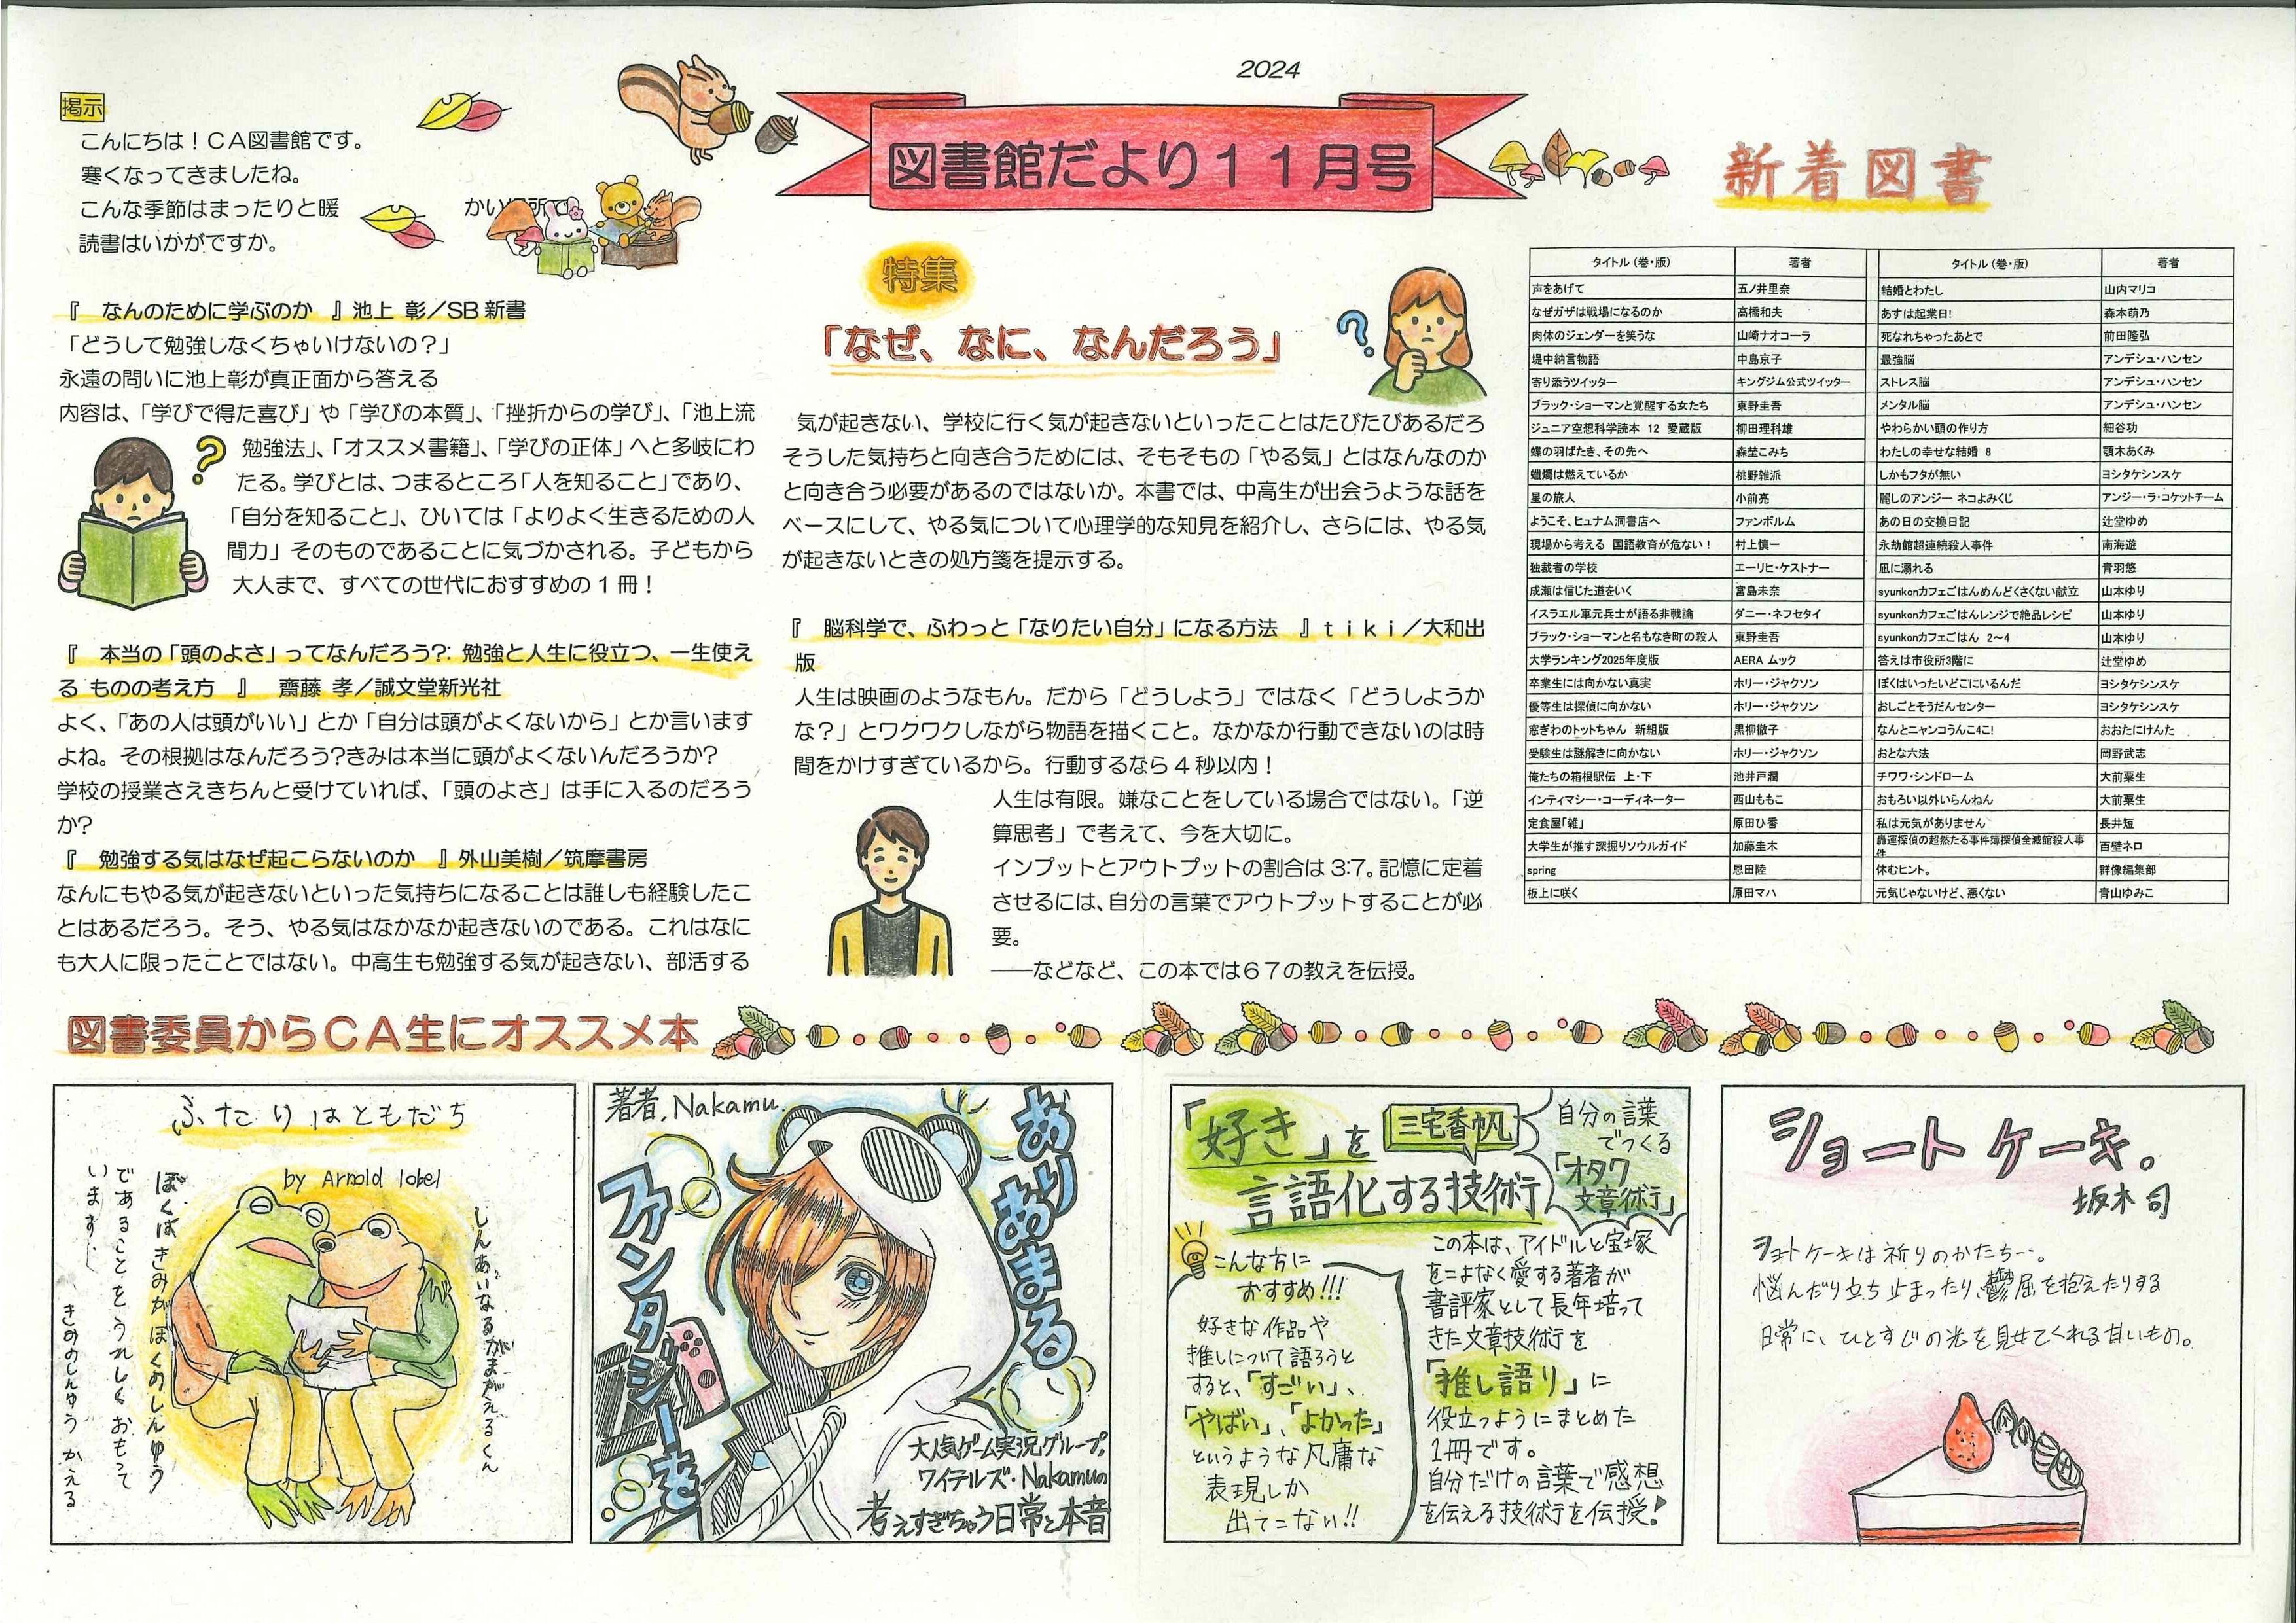 2024
図書館だより１１月号
掲示
こんにちは！ＣＡ図書館です。
寒くなってきましたね。
こんな季節はまったりと暖かい場所で
読書はいかがですか。
『　なんのために学ぶのか　』池上 彰／SB 新書
「どうして勉強しなくちゃいけないの？」
永遠の問いに池上彰が真正面から答える
内容は、「学びで得た喜び」や「学びの本質」、「挫折からの学び」、「池上流
勉強法」、「オススメ書籍」、「学びの正体」へと多岐にわ
たる。学びとは、つまるところ「人を知ること」であり、
「自分を知ること」、ひいては「よりよく生きるための人
間力」そのものであることに気づかされる。子どもから
大人まで、すべての世代におすすめの 1 冊！
『　本当の「頭のよさ」ってなんだろう?: 勉強と人生に役立つ、一生使え
る ものの考え方　』　齋藤 孝／誠文堂新光社
よく、「あの人は頭がいい」とか「自分は頭がよくないから」とか言います
よね。その根拠はなんだろう?きみは本当に頭がよくないんだろうか?
学校の授業さえきちんと受けていれば、「頭のよさ」は手に入るのだろう
か?
『　勉強する気はなぜ起こらないのか　』外山美樹／筑摩書房
なんにもやる気が起きないといった気持ちになることは誰しも経験したこ
とはあるだろう。そう、やる気はなかなか起きないのである。これはなに
も大人に限ったことではない。中高生も勉強する気が起きない、部活する
特集
「なぜ、なに、なんだろう」
気が起きない、学校に行く気が起きないといったことはたびたびあるだろ
そうした気持ちと向き合うためには、そもそもの「やる気」とはなんなのか
と向き合う必要があるのではないか。本書では、中高生が出会うような話を
ベースにして、やる気について心理学的な知見を紹介し、さらには、やる気
が起きないときの処方箋を提示する。
『　脳科学で、ふわっと「なりたい自分」になる方法　』ｔｉｋｉ／大和出
版
人生は映画のようなもん。だから「どうしよう」ではなく「どうしようか
な？」とワクワクしながら物語を描くこと。なかなか行動できないのは時
間をかけすぎているから。行動するなら 4 秒以内！
人生は有限。嫌なことをしている場合ではない。「逆
算思考」で考えて、今を大切に。
インプットとアウトプットの割合は 3:7。記憶に定着
させるには、自分の言葉でアウトプットすることが必
要。
――などなど、この本では６７の教えを伝授。
新着図書
タイトル（巻・版） 著者 タイトル（巻・版） 著者
声をあげて 五ノ井里奈 結婚とわたし 山内マリコ
なぜガザは戦場になるのか 高橋和夫 あすは起業日! 森本萌乃
肉体のジェンダーを笑うな 山崎ナオコーラ 死なれちゃったあとで 前田隆弘
堤中納言物語 中島京子 最強脳 アンデシュ・ハンセン
寄り添うツイッター キングジム公式ツイッター ストレス脳 アンデシュ・ハンセン
ブラック・ショーマンと覚醒する女たち 東野圭吾 メンタル脳 アンデシュ・ハンセン
ジュニア空想科学読本 12 愛蔵版 柳田理科雄 やわらかい頭の作り方 細谷功
蝶の羽ばたき、その先へ 森埜こみち わたしの幸せな結婚 8 顎木あくみ
蠟燭は燃えているか 桃野雑派 しかもフタが無い ヨシタケシンスケ
星の旅人 小前亮 麗しのアンジー ネコよみくじ アンジー・ラ・コケットチーム
ようこそ、ヒュナム洞書店へ ファンボルム あの日の交換日記 辻堂ゆめ
現場から考える 国語教育が危ない！ 村上慎一 永劫館超連続殺人事件 南海遊
独裁者の学校 エーリヒ・ケストナー 凪に溺れる 青羽悠
成瀬は信じた道をいく 宮島未奈 syunkonカフェごはんめんどくさくない献立 山本ゆり
イスラエル軍元兵士が語る非戦論 ダニー・ネフセタイ syunkonカフェごはんレンジで絶品レシピ 山本ゆり
ブラック・ショーマンと名もなき町の殺人 東野圭吾 syunkonカフェごはん 2～4 山本ゆり
大学ランキング2025年度版 AERA ムック 答えは市役所3階に 辻堂ゆめ
卒業生には向かない真実 ホリー・ジャクソン ぼくはいったいどこにいるんだ ヨシタケシンスケ
優等生は探偵に向かない ホリー・ジャクソン おしごとそうだんセンター ヨシタケシンスケ
窓ぎわのトットちゃん 新組版 黒柳徹子 なんとニャンコうんこ4こ! おおたにけんた
受験生は謎解きに向かない ホリー・ジャクソン おとな六法 岡野武志
俺たちの箱根駅伝 上・下 池井戸潤 チワワ・シンドローム 大前粟生
インティマシー・コーディネーター 西山ももこ おもろい以外いらんねん 大前粟生
定食屋「雑」 原田ひ香 私は元気がありません 長井短
大学生が推す深掘りソウルガイド 加藤圭木 轟運探偵の超然たる事件簿探偵全滅館殺人事件 百壁ネロ
spring 恩田陸 休むヒント。 群像編集部
板上に咲く 原田マハ 元気じゃないけど、悪くない 青山ゆみこ
図書委員からＣＡ生にオススメ本
ふたりはともだち
by Arnold lobel
しんあいなるがまがえるくん
ぼくはきみがぼくのしんゆう
であることをうれしくおもって
います。
きみのしんゆう かえる
著者，Nakamu.
ありあまる
ファンタジーを
大人気ゲーム実況グループ。
ワイテルズ・Nakamuの
考えすぎちゃう日常と本音
「好き」を
言語化する技術
三宅香帆
自分の言葉
でつくる
「オタク
文章術」
こんな方に
おすすめ!!!
好きな作品や
推しについて語ろうと
すると、「すごい」、
「やばい」、「よかった」
というような凡庸な
表現しか
出てこない!!
この本は、アイドルと宝塚
をこよなく愛する著者が
書評家として長年培って
きた文章技術を
「推し語り」に
役立つようにまとめた
1冊です。
自分だけの言葉で感想
を伝える技術を伝授！
ショートケーキ。
坂木司
ショートケーキは祈りのかたち…。
悩んだり立ち止まったり、鬱屈を抱えたりする
日常に、ひとすじの光を見せてくれる甘いもの。